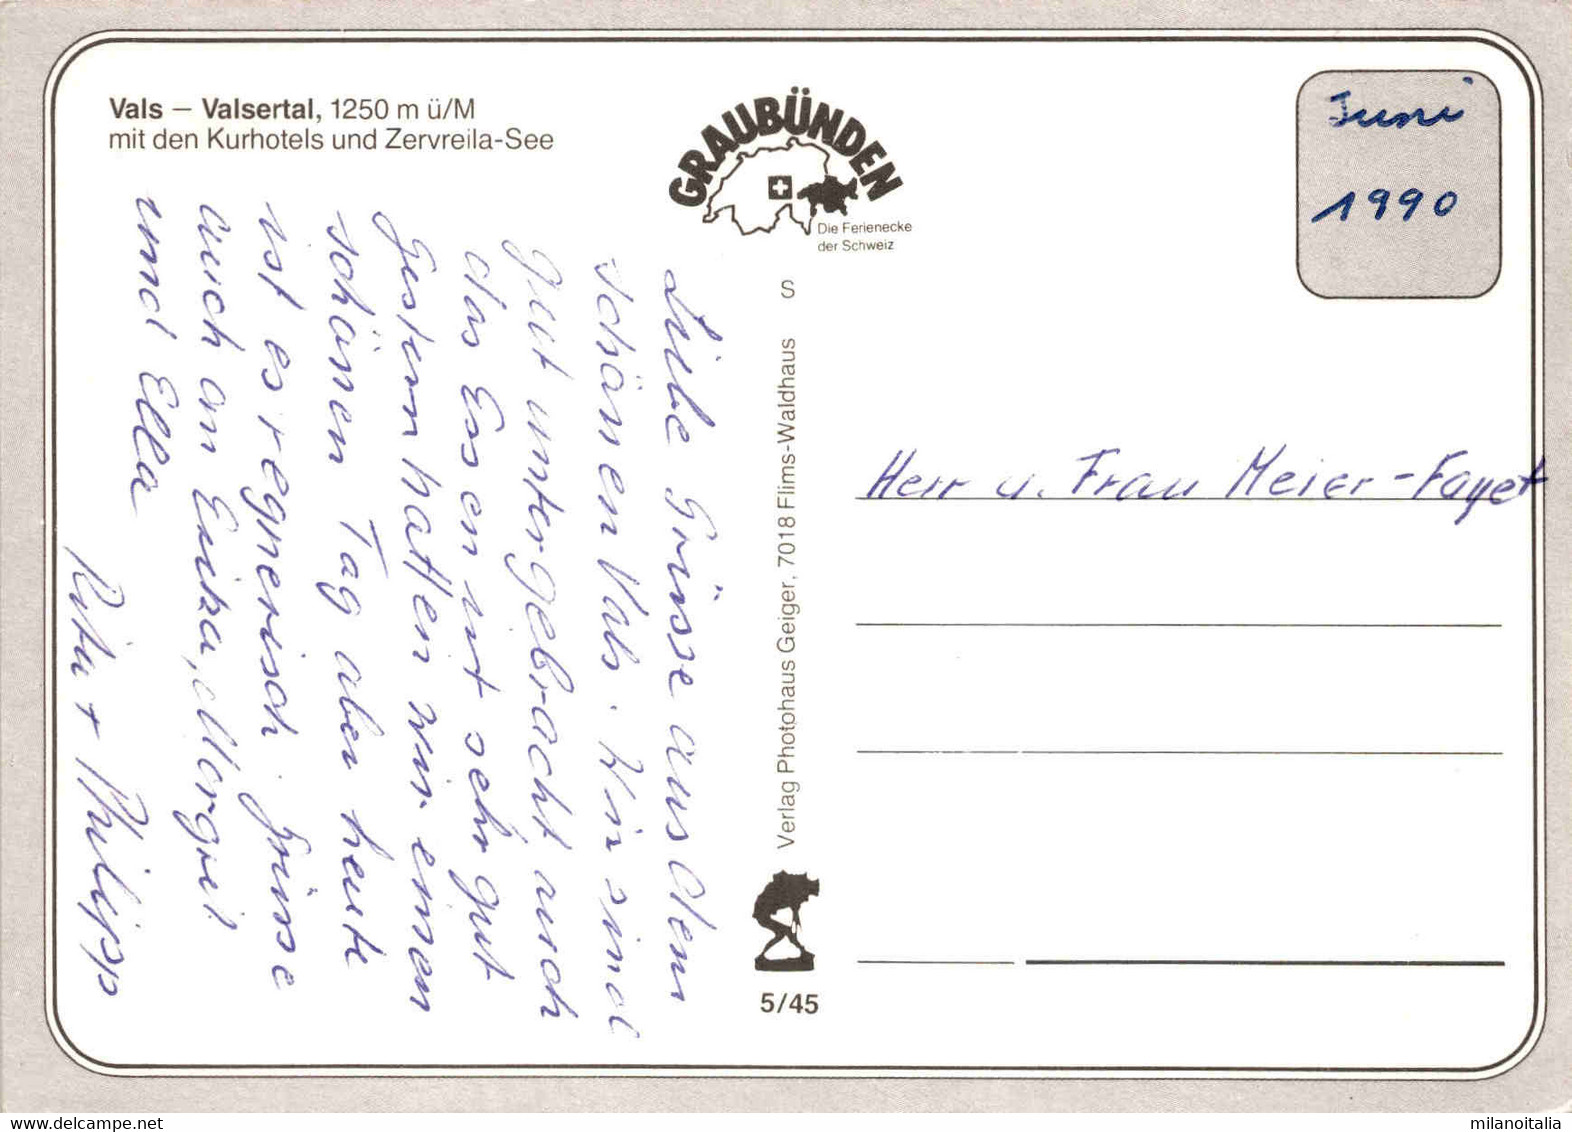 Vals – Valsertal, 1250 m ü/M
mit den Kurhotels und Zervreila-See
GRAUBÜNDEN
Die Ferienecke
der Schweiz
Juni
1990
S
Verlag Photohaus Geiger, 7018 Flims-Waldhaus
5/45
Liebe Grüsse aus dem
schönen Vals. Wir sind
gut untergebracht auch
das Essen ist sehr gut
gestern hatten wir einen
schönen Tag aber heute
ist es regnerisch. Grüsse
auch an Erika, Margrit
und Ella
Rita + Philipp
Herr u. Frau Meier-Fayet
milanoitalia
delcampe.net